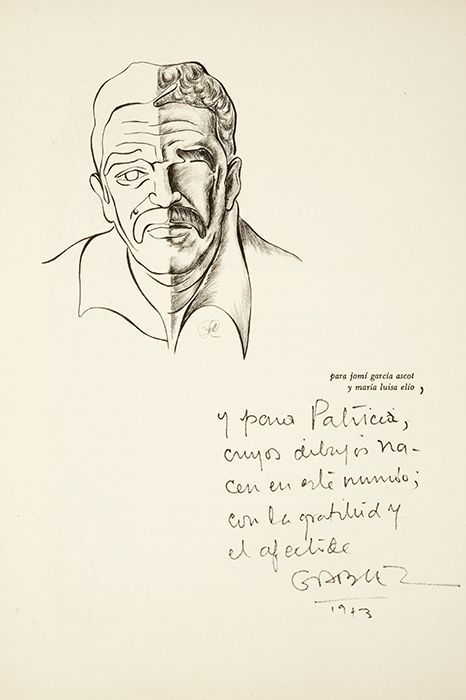 para jomí garcía ascot
y maría luisa elío ,
y para Patricia,
cuyos dibujos na-
cen en este mundo;
con la gratitud y
el afecto de
GABRIEL
1973